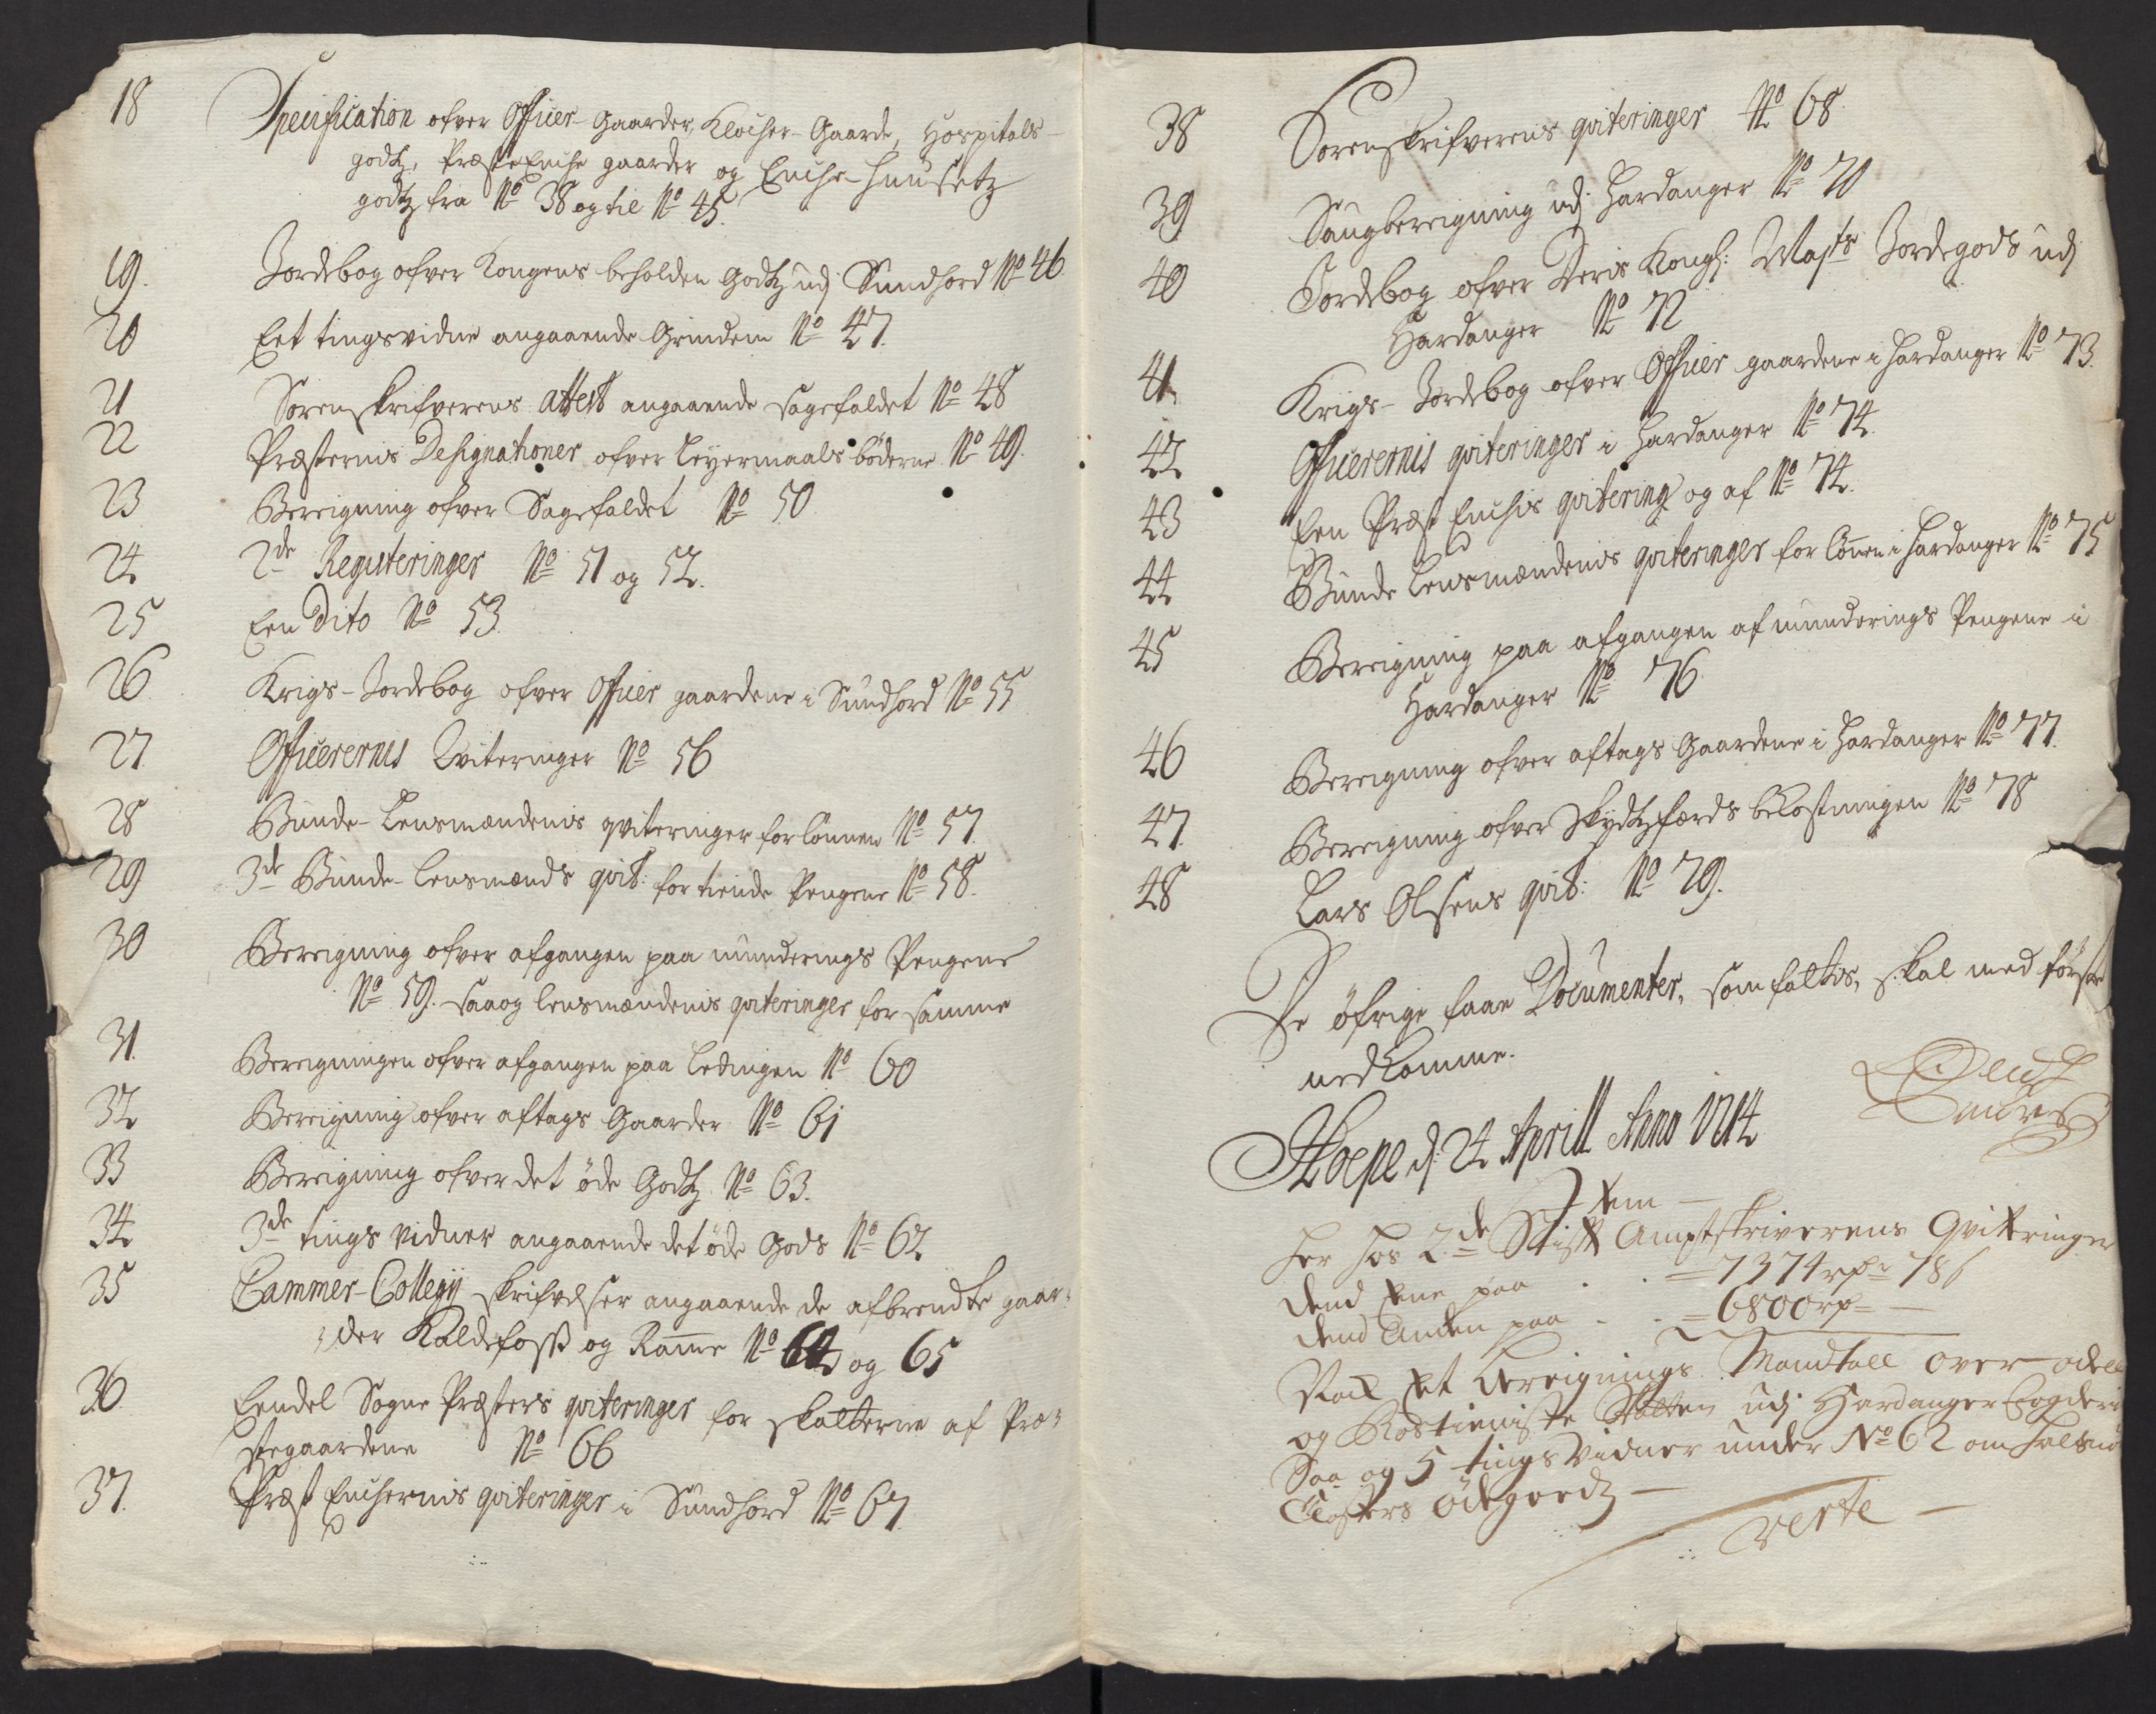 18 Specification ofver Officer-Gaarder, Klocher-Gaarde, Hospitals-
godtz, Præste Enche gaarder og Enche-Huusetz
godtz fra No 38 og til No 45.
19. Jordebog ofver Kongens beholden Godtz udj Sundhord No 46
20 Eet tingsvidne angaaende Grindem No 47.
21 Sorenskrifverens attest angaaende sagefaldet No 48
22 Præsternis Designationer ofver Leyermaals bøderne No 49.
23 Beregning ofver Sagefaldet No 50
24 2de Registeringer No 51 og 52.
25 Een Dito No 53
26 Krigs-Jordebog ofver Officer gaardene i Sundhord No 55
27 Officerernis Qviteringer No 56
28 Bunde-Lensmændenis qviteringer for lønnen No 57.
29 3de Bunde-Lensmænds qvit: for tiende Pengene No 58.
30 Beregning ofver afgangen paa munderings Pengene
No 59. saaog lensmændenis qviteringer for samme
31. Beregningen ofver afgangen paa Ledingen No 60
32 Beregning ofver aftags Gaarder No 61
33 Beregning ofver det øde Godtz No 63.
34 3de tings vidner angaaende det øde Gods No 62
35 Cammer-Collegij skrifvelser angaaende de afbrendte gaar-
der Kaldefoss og Ramme No 64 og 65
36 Eendel Sogne Præsters qviteringer for skatterne af Præ-
stegaardene No 66
37. Præst Enchernis qviteringer i Sundhord No 67
38 Sorenskrifverens qviteringer No 68
39 Saugberegning udj Hardanger No 70
40 Jordebog ofver Deris Kongl: Mayts Jordegods udj
Hardanger No 72
41. Krigs-Jordebog ofver Officer gaardene i Hardanger No 73.
42 Officerernis qviteringer i Hardanger No 74.
43 Een Præst Enchis qvitering og af No 74.
44 Bunde Lensmændenis qviteringer for lønnen i Hardanger No 75
45 Beregning paa afgangen af munderings Pengene i
Hardanger No 76
46 Beregning ofver aftags Gaardene i Hardanger No 77.
47. Beregning ofver Skydtzferds bekostningen No 78
48 Lars Olsens qvit: No 79.
De øfrige faae Documenter, som fattes, skal med første
nedkomme.
Hoepe d: 24 Aprill Anno 1714
Item
her hos 2de Stift Amptskriverens Qvitteringer
dend Ene paa . . = 7374 rdr 78 s
dend Anden paa . . = 6800 rdr
Nock Et Beregnings Mandtall over odell
og Rostieniste Skatten udj Hardanger Fogderi
Saa og 5 tings Vidner under No 62 om Halsnø
Closters ødegodz
verte